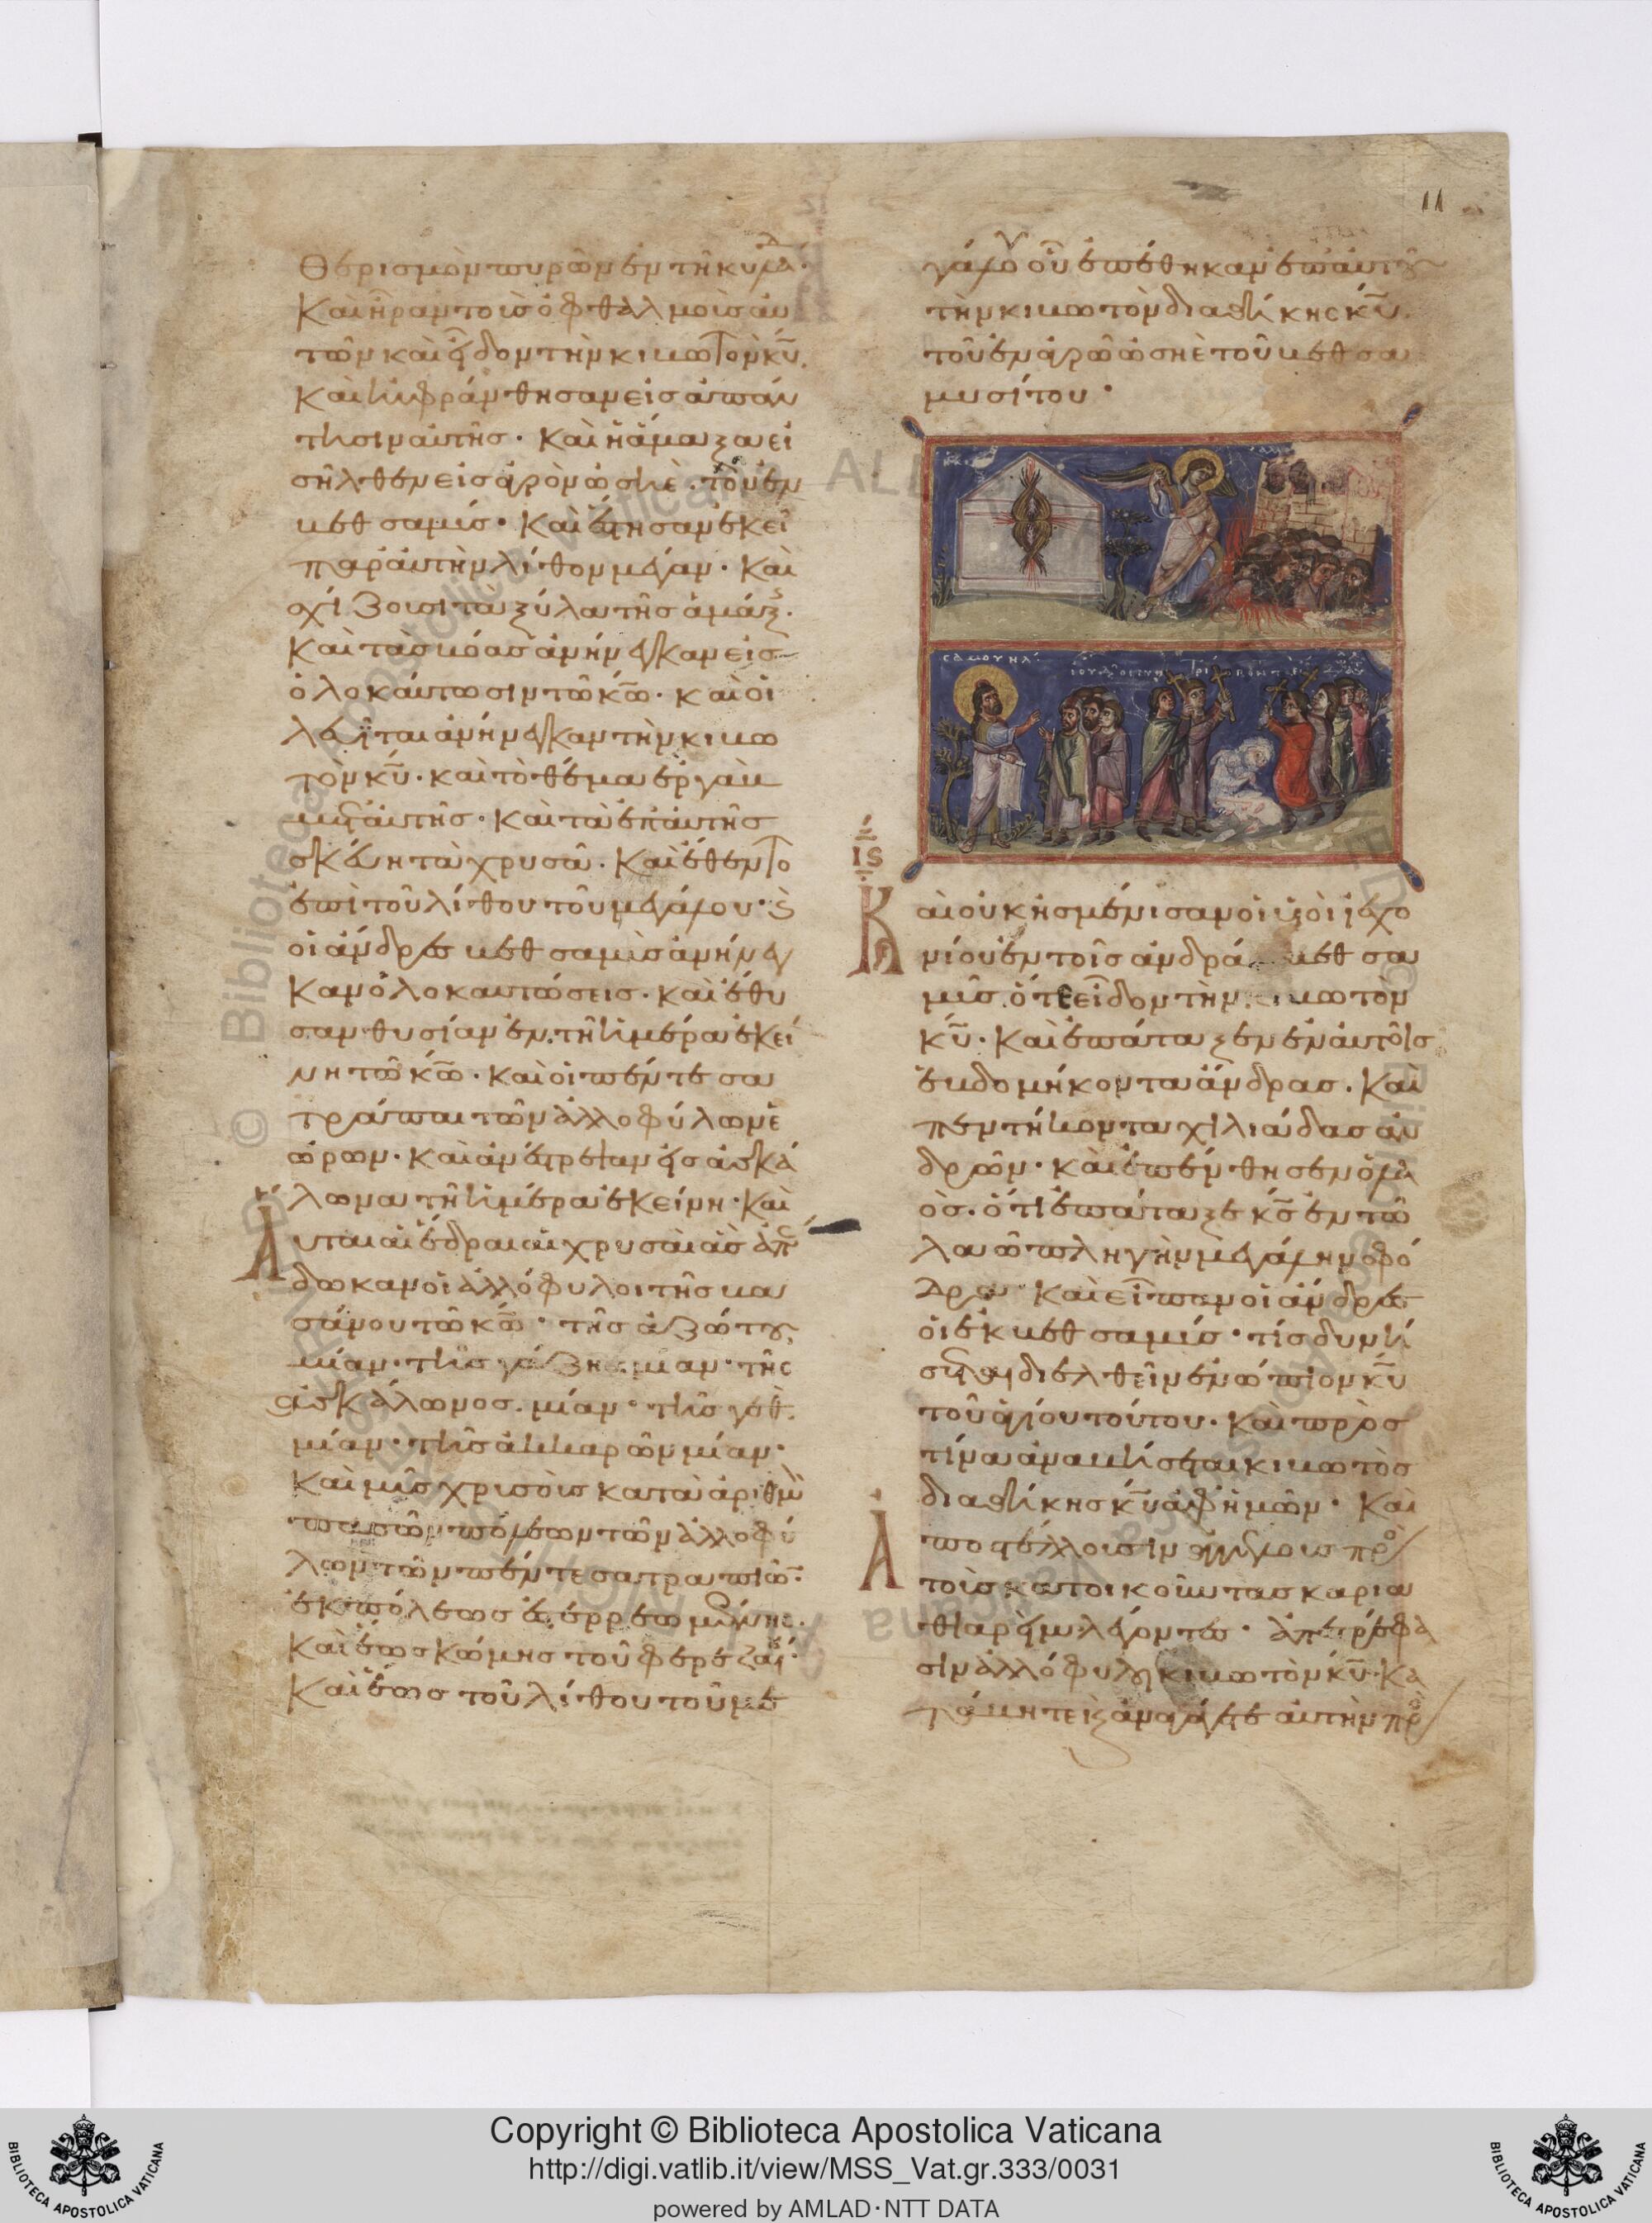 11
θερισμὸν πυρῶν ἐν τῆ κυλάδ.
Καὶ ἦραν τοὺς ὀφθαλμοὺς αὐ
τῶν καὶ εἶδον τὴν κιβωτὸν κ̅υ̅.
Καὶ ηὐφράνθησαν εἰς ἀπάν
τησιν αὐτῆς. Καὶ ἡ ἅμαξα εἰ
σῆλθεν εἰς ἀγρὸν ὡσηὲ. τὸν ἐν
βεθσαμὺς. Καὶ ἔστησαν ἐκεῖ
παρ αὐτὴν λίθον μέγαν. Καὶ
σχίζουσι τὰ ξύλα τῆς ἁμάξ.
Καὶ τὰς βόας ἀνήνεγκαν εἰς
ὁλοκαύτωσιν τῶ κ̅ω̅. καὶ οἱ
λευῖται ἀνήνεγκαν τὴν κιβω
τὸν κ̅υ̅. καὶ τὸ θέμα ἐργὰβ
μετ αὐτῆς. Καὶ τὰ ἐπ αὐτῆς
σκεύη τὰ χρυσᾶ. Καὶ ἔθεντο
ἐπὶ τοῦ λίθου τοῦ μεγάλου. Ϗ
οἱ ἄνδρες βεθσαμὺς ἀνήνεγ
καν ὁλοκαυτώσεις. καὶ ἔθυ
σαν θυσίαν ἐν τῆ ἡμέρα ἐκεί
νη τῶ κ̅ω̅. Καὶ οἱ πέντε σα
τράπαι τῶν ἀλλοφύλων ἑ
ώρων. Καὶ ἀνέστρεψαν εἰς ἀσκά
λωνα τῆ ἡμέρα ἐκείνη. Καὶ
Αὗται αἱ ἕδραι αἱ χρυσαῖ ἃς ἀπέ
δωκαν οἱ ἀλλόφυλοι τῆς βα
σάνου τῶ κ̅ω̅. τῆς ἀζώτου
μίαν. τῆς γάζης μίαν. τῆς
ἀσκάλωνος. μίαν. τῆς γέθ.
μίαν. τῆς ἀκκαρῶν μίαν.
Καὶ μῦς χρυσοῦς κατὰ ἀριθμὸν
πασῶν πόλεων τῶν ἀλλοφύ
λων τῶν πέντε σατραπιῶν.
ἐκ πόλεως ἐστερρεωμένης.
Καὶ ἕως κώμης τοῦ φερεζαί.
Καὶ ἕως τοῦ λίθου τοῦ με
γάλου οὗ ἐπέθηκαν ἐπ αὐτοῦ
τὴν κιβωτὸν διαθήκης κ̅υ̅.
τοῦ ἐν ἀγρῶ ὡσηὲ τοῦ βεθσα
μυσίτου.
ΣΑΜΟΥΗΛ
ι̅ϛ̅
Καὶ οὐκ ἠσμένισαν οἱ υἱοὶ ἰεχο
νίου ἐν τοῖς ἀνδρά βεθσα
μῦς. ὅτε εἶδον τὴν κιβωτὸν
κ̅υ̅. Καὶ ἐπάταξεν ἐν αὐτοῖς
ἑβδομήκοντα ἄνδρας. Καὶ
πεντήκοντα χιλιάδας ἀν
δρῶν. καὶ ἐπένθησεν ὁ λα
ός. ὅτι ἐπάταξε κ̅ς̅ ἐν τῶ
λαῶ πληγὴν μεγάλην σφό
δρα. Καὶ εἶπαν οἱ ἄνδρες
οἱ ἐκ βεθσαμύς. τίς δυνή
σεται διελθεῖν ἐνώπιον κ̅υ̅
τοῦ ἁγίου τούτου. Καὶ πρὸς
τίνα ἀναβήσεται κιβωτὸς
διαθήκης κ̅υ̅ ἀφ ἡμῶν. Καὶ
Ἀποστέλλουσιν ἀγγέλους πρὸ
τοὺς κατοικοῦντας καρια
θιαρεὶμ λέγοντες. ἀπεστρόφα
σιν ἀλλόφυλοι κιβωτὸν κ̅υ̅. Κα
τάβητε καὶ ἀναγάγετε αὐτὴν πρὸ
© Biblioteca Apostolica Vaticana
Copyright © Biblioteca Apostolica Vaticana
http://digi.vatlib.it/view/MSS_Vat.gr.333/0031
powered by AMLAD·NTT DATA
BIBLIOTECA APOSTOLICA VATICANA
BIBLIOTECA APOSTOLICA VATICANA